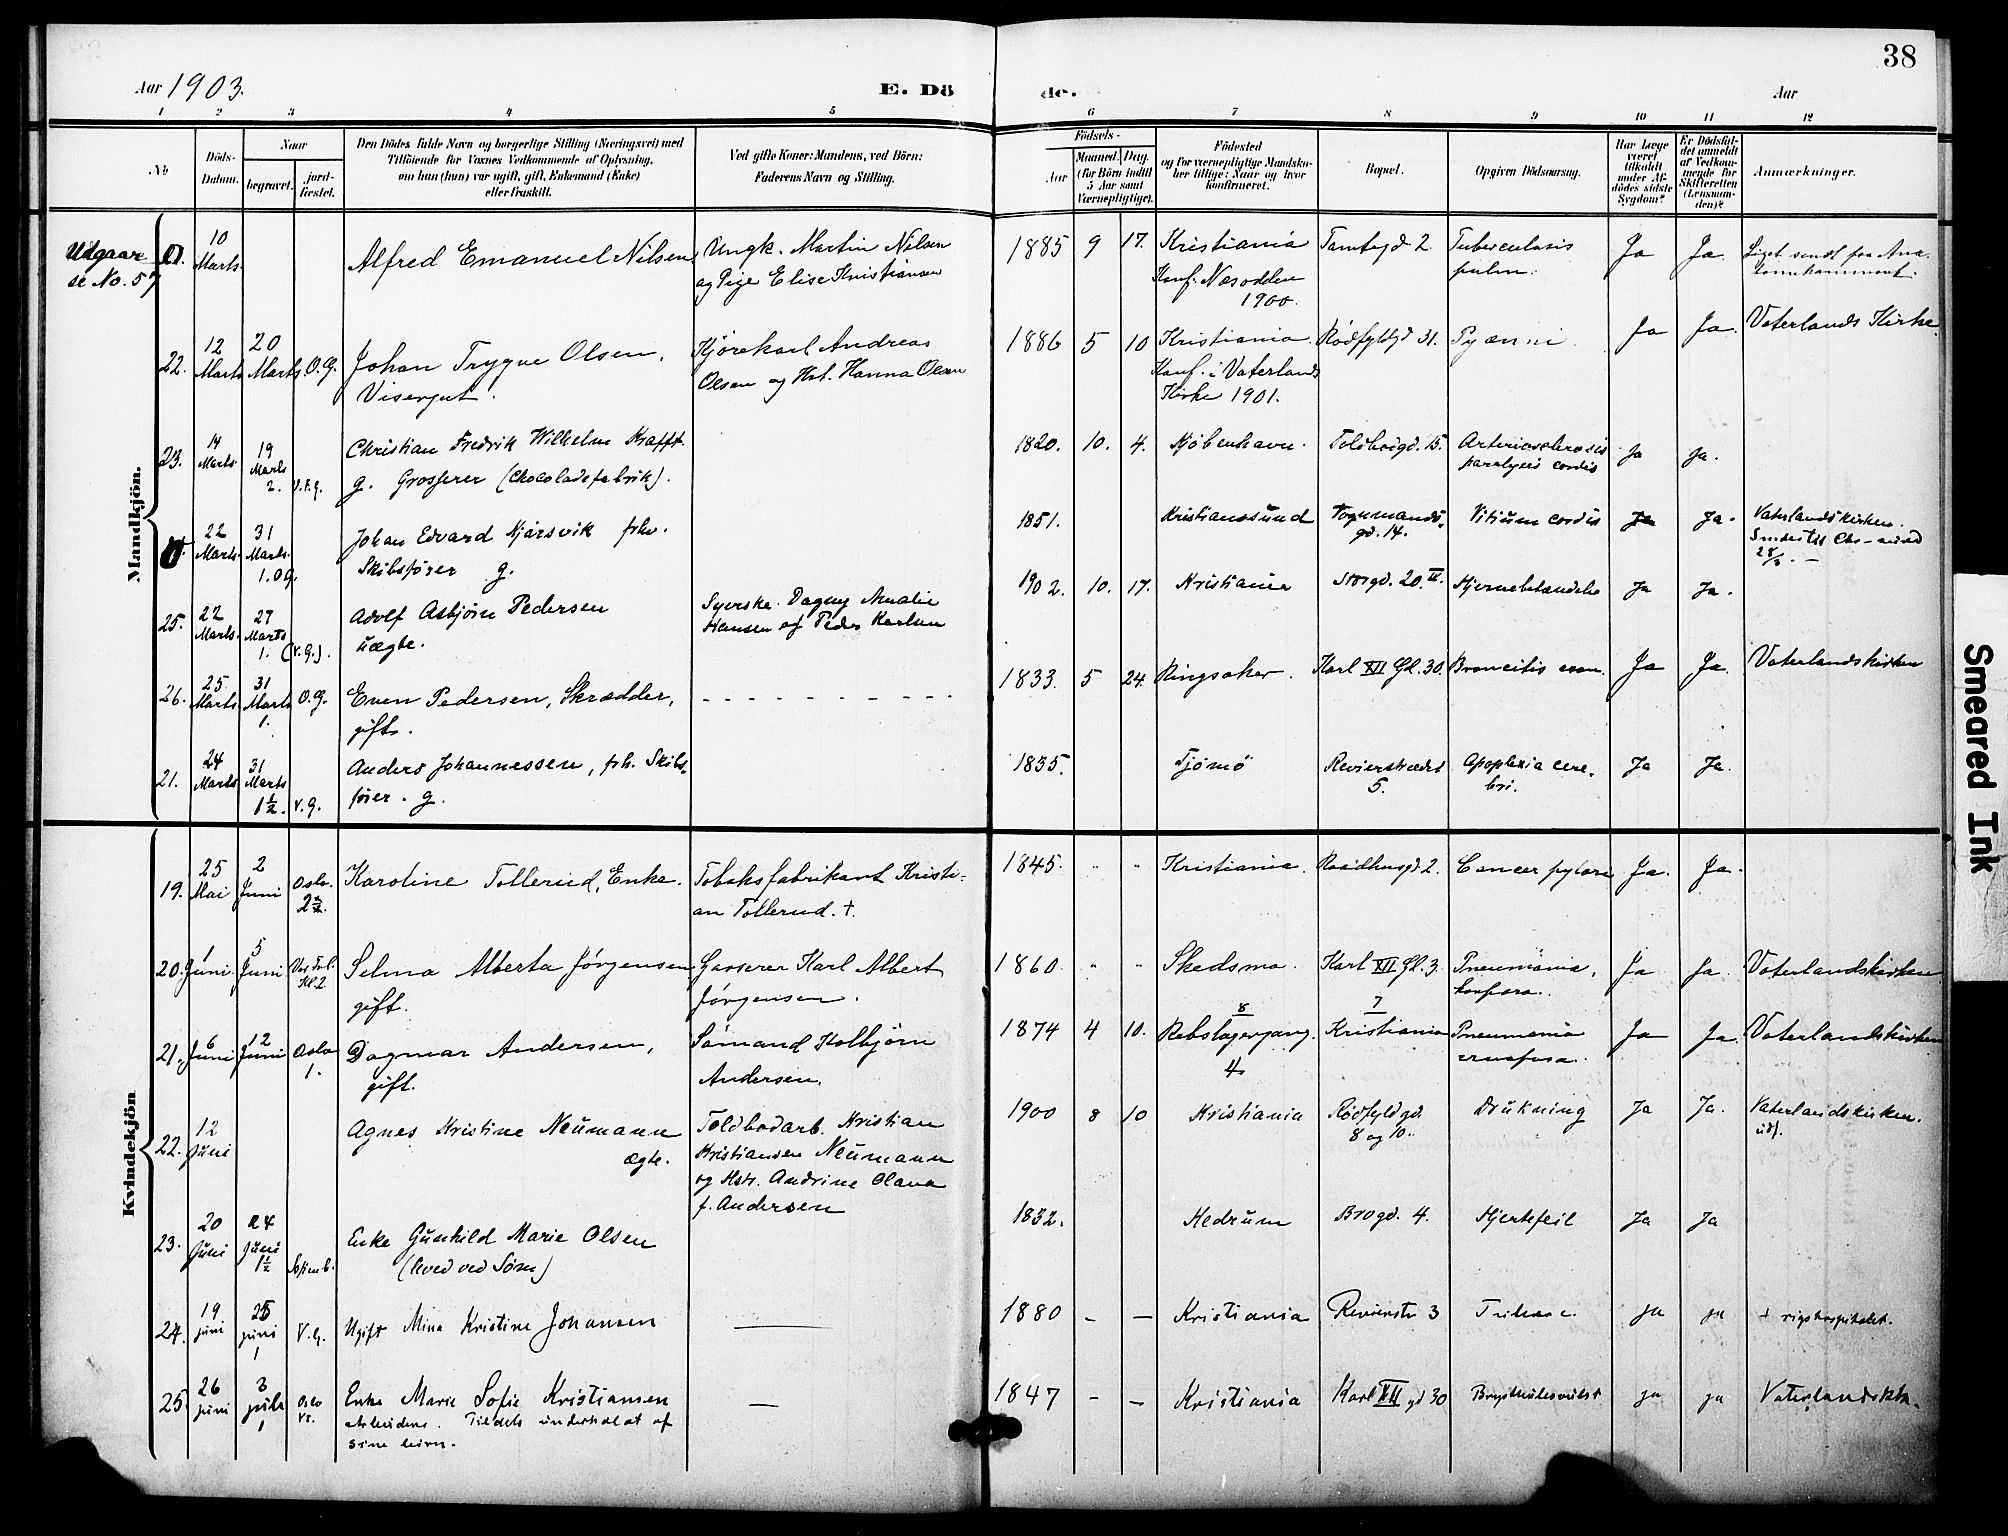 38
Aar 1903.
E. Dö
de.
Aar
1 2 3 4 5
6 7 8 9 10 11 12
No
Döds-
Datum.
Naar
begravet.
jord-
fæstet.
Den Dödes fulde Navn og borgerlige Stilling (Næringsvei) med
Tilföiende for Voxnes Vedkommende af Oplysning,
om han (hun) var ugift, gift, Enkemand (Enke)
eller fraskilt.
Ved gifte Koner: Mandens, ved Börn:
Faderens Navn og Stilling.
Födsels-
Aar
Maaned. Dag.
(for Börn indtil
5 Aar samt
Værnepligtige).
Födested
og for værnepligtige Mandska-
ber tillige: Naar og hvor
konfirmeret.
Bopæl.
Opgiven Dödsaarsag.
Har Læge
været
tilkaldt
under Af-
dödes sidste
Sygdom?
Er Dödsfal-
det anmeldt
af Vedkom-
mende for
Skifteretten
(Lensman-
den)?
Anmærkninger.
Mandkjön.
Udgaar
se No. 57
10
Marts.
Alfred Emanuel Nilsen
Ungk. Martin Nilsen
og Pige Elise Kristiansen
1885 9 17. Kristiania
Konf. Nesodden
1900.
Tomtegd 2. Tuberculosis
pulm.
Ja Ja
Liget sendt fra Ana-
22. 12
Marts
20
Marts. O.G.
Johan Trygve Olsen,
Visergut.
Kjørekarl Andreas
Olsen og Hst. Hanna Olsen
1886 5 10 Kristiania.
Konf. i Vaterlands
Kirke 1901.
Rødfyldgd 31. Pyæmi. Ja Ja. Vaterlands Kirke.
23. 14
Marts.
19
Marts
2. V.F.g.
Christian Fredrik Wilhelm Krafft.
g. Grosserer (Chocoladefabrik).
1820. 10. 4. Kjøbenhavn. Toldbodgd. 15. Arteriosclerosis
paralysis cordis
Ja Ja.
22
Marts.
31
Marts.
1. O.g.
Johan Edvard Kjårsvik frhv.
Skibsfører g.
1851. Kristianssund Tognmands-
gd. 14.
Vitium cordis Ja Ja.
Vaterlandskirken.
28/3. –
25. 22
Marts.
27
Marts
1. (V.G.).
Adolf Asbjørn Pedersen
uægte.
Syerske Dagny Amalie
Hansen og Peder Karlsen
1902. 10. 17. Kristiania Storgd. 20. II. Hjernebetændelse Ja Ja.
26. 25
Marts.
31
Marts
1.
O.G.
Even Pedersen, Skrædder,
gift.
1833. 5 24. Ringsaker. Karl XII Gd. 30. Broncitis Ja Ja. Vaterlandskirken
21. 24
Marts
31
Marts
1½. V.G.
Anders Johannessen, frh. Skibs-
fører. g.
1835. Tjömö Revierstrædet
5.
Apoplexia cere-
bri.
Ja Ja.
Kvindekjön
19. 25
Mai
2
Juni
Oslo.
2½.
Karoline Tollerud, Enke.
Tobaksfabrikant Kristi-
an Tollerud. +.
1845. " " Kristiania. Raadhusgd 2. Cancer pylori Ja. Ja.
20. 1
Juni.
5
Juni
Vor Frl.
Kl. 2
Selma Alberta Jörgensen
gift.
Gasserer Karl Albert
Jörgensen.
1860. " " Skedsmo. Karl XII Gd. 3. Pneumonia,
Ja Ja. Vaterlandskirken
21. 6
Juni
12
Juni
Oslo
1.
Dagmar Andersen,
gift.
Sömand Kolbjörn
Andersen.
1874 4 10. 8
Rebslagergang.
4
7
Kristiania Pneumonia
crouposa.
Ja Ja. Vaterlandskirken
22. 12
Juni
Agnes Kristine Neumann
ægte.
Toldbodarb. Kristian
Kristiansen Neumann
og Hstr. Andrine Olava
f. Andersen
1900 8 10 Kristiania Rødfyldgd.
8 og 10.
Drukning Ja Ja. Vaterlandskirken.
udf.
23. 20
Juni
24
Juni
1½
Enke Gunhild Marie Olsen
(leved ved Søm)
1832. Hedrum Brogd. 4. Hjertefeil Ja Ja
24. 19
juni
25
juni
1
V.G.
Ugift Mina Kristine Johansen
1880 – – Kristiania Revierstr 3 ja ja + rigshospitalet.
25. 26
juni
3
juli
1
Oslo
Enke Marie Sofie Kristiansen
arbeiders. Tildels underholdt af
sine börn.
1847 – – Kristiania Karl XII gd 30 Brysthulesvulst ja ja Vaterlandskk.
Smeared Ink